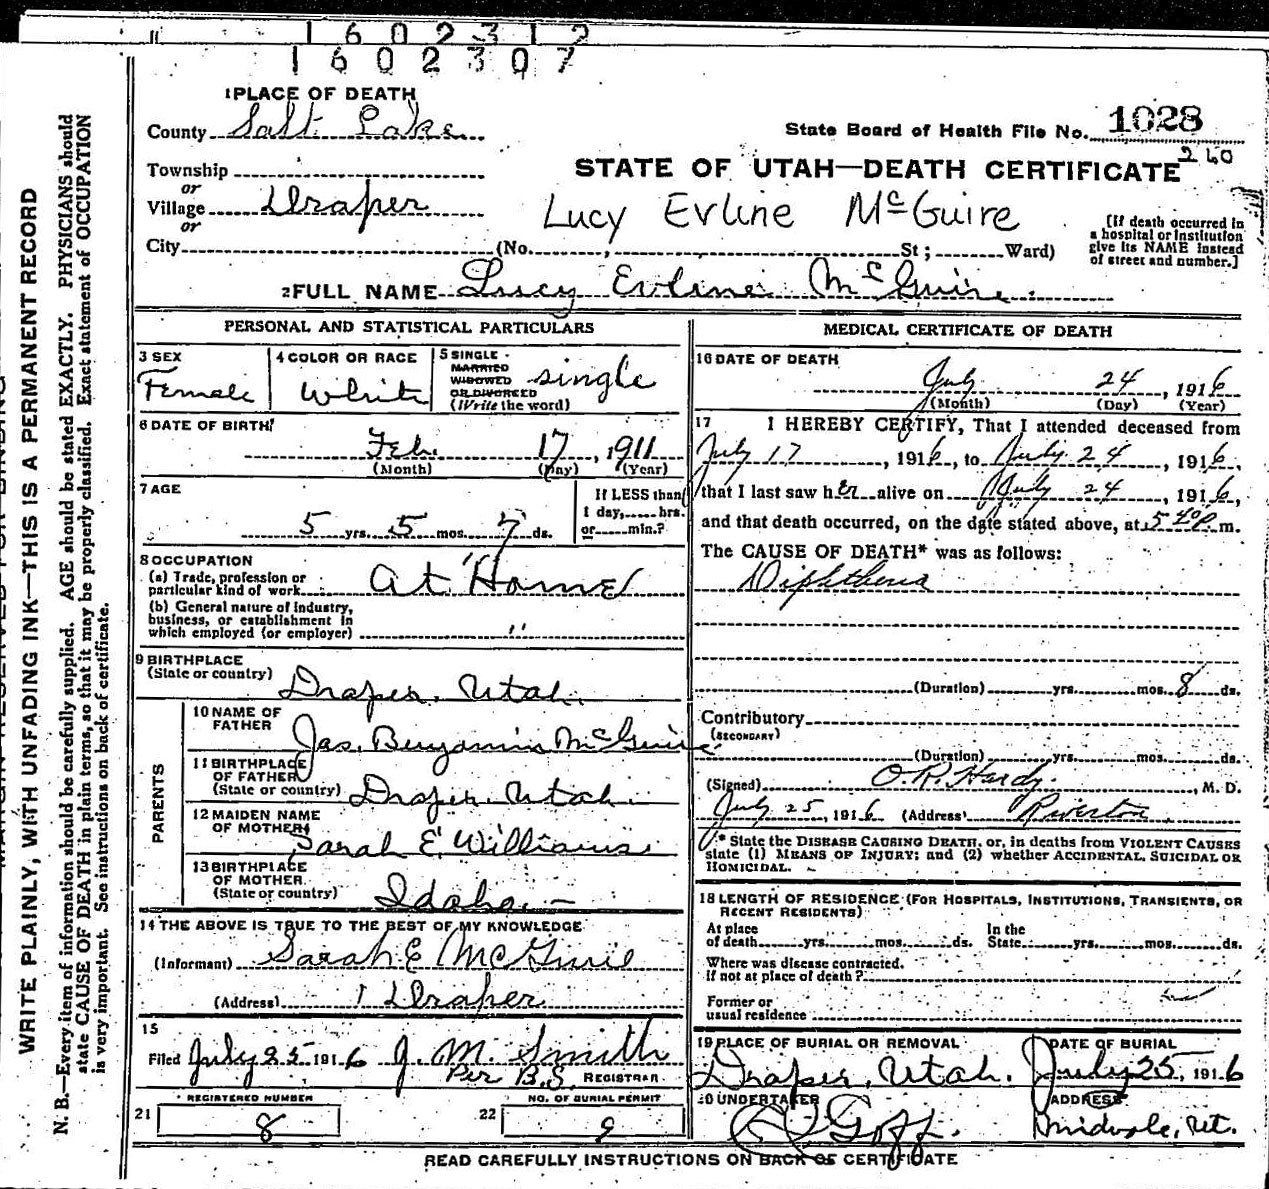 1602312
1602307
1 PLACE OF DEATH
County Salt Lake
State Board of Health File No. 1028
260
Township
STATE OF UTAH—DEATH CERTIFICATE
or
Village Draper
Lucy Evline McGuire
or
City (No. , St; Ward)
[If death occurred in a hospital or institution give its NAME instead of street and number.]
2 FULL NAME Lucy Evline McGuire
PERSONAL AND STATISTICAL PARTICULARS
3 SEX
Female
4 COLOR OR RACE
White
5 SINGLE
MARRIED
WIDOWED
OR DIVORCED
(Write the word)
single
6 DATE OF BIRTH
Feb. 17, 1911
(Month) (Day) (Year)
7 AGE
5 yrs. 5 mos. 7 ds.
If LESS than
1 day, hrs.
or min.?
8 OCCUPATION
(a) Trade, profession or
particular kind of work At Home
(b) General nature of industry,
business, or establishment in
which employed (or employer) "
9 BIRTHPLACE
(State or country) Draper, Utah.
PARENTS
10 NAME OF
FATHER Jas. Benjamin McGuire
11 BIRTHPLACE
OF FATHER
(State or country) Draper, Utah.
12 MAIDEN NAME
OF MOTHER Sarah E. Williams
13 BIRTHPLACE
OF MOTHER
(State or country) Idaho.
14 THE ABOVE IS TRUE TO THE BEST OF MY KNOWLEDGE
(Informant) Sarah E McGuire
(Address) Draper
15
Filed July 25 1916 J. M. Smith
Per B.S. REGISTRAR
21 REGISTERED NUMBER
8
22 NO. OF BURIAL PERMIT
9
MEDICAL CERTIFICATE OF DEATH
16 DATE OF DEATH
July 24, 1916
(Month) (Day) (Year)
17 I HEREBY CERTIFY, That I attended deceased from
July 17, 1916, to July 24, 1916,
that I last saw her alive on July 24, 1916,
and that death occurred, on the date stated above, at 5 40 P. m.
The CAUSE OF DEATH* was as follows:
Diphtheria
(Duration) yrs. mos. 8 ds.
Contributory
(SECONDARY)
(Duration) yrs. mos. ds.
(Signed) O.R. Hardy, M. D.
July 25, 1916 (Address) Riverton
* State the DISEASE CAUSING DEATH, or, in deaths from VIOLENT CAUSES
state (1) MEANS OF INJURY; and (2) whether ACCIDENTAL, SUICIDAL OR
HOMICIDAL.
18 LENGTH OF RESIDENCE (FOR HOSPITALS, INSTITUTIONS, TRANSIENTS, OR
RECENT RESIDENTS)
At place In the
of death yrs. mos. ds. State yrs. mos. ds.
Where was disease contracted,
if not at place of death?
Former or
usual residence
19 PLACE OF BURIAL OR REMOVAL
Draper, Utah.
DATE OF BURIAL
July 25, 1916
20 UNDERTAKER
Goff.
ADDRESS
Midvale, Ut.
READ CAREFULLY INSTRUCTIONS ON BACK OF CERTIFICATE
WRITE PLAINLY, WITH UNFADING INK—THIS IS A PERMANENT RECORD
N. B.—Every item of information should be carefully supplied. AGE should be stated EXACTLY. PHYSICIANS should
state CAUSE OF DEATH in plain terms, so that it may be properly classified. Exact statement of OCCUPATION
is very important. See instructions on back of certificate.